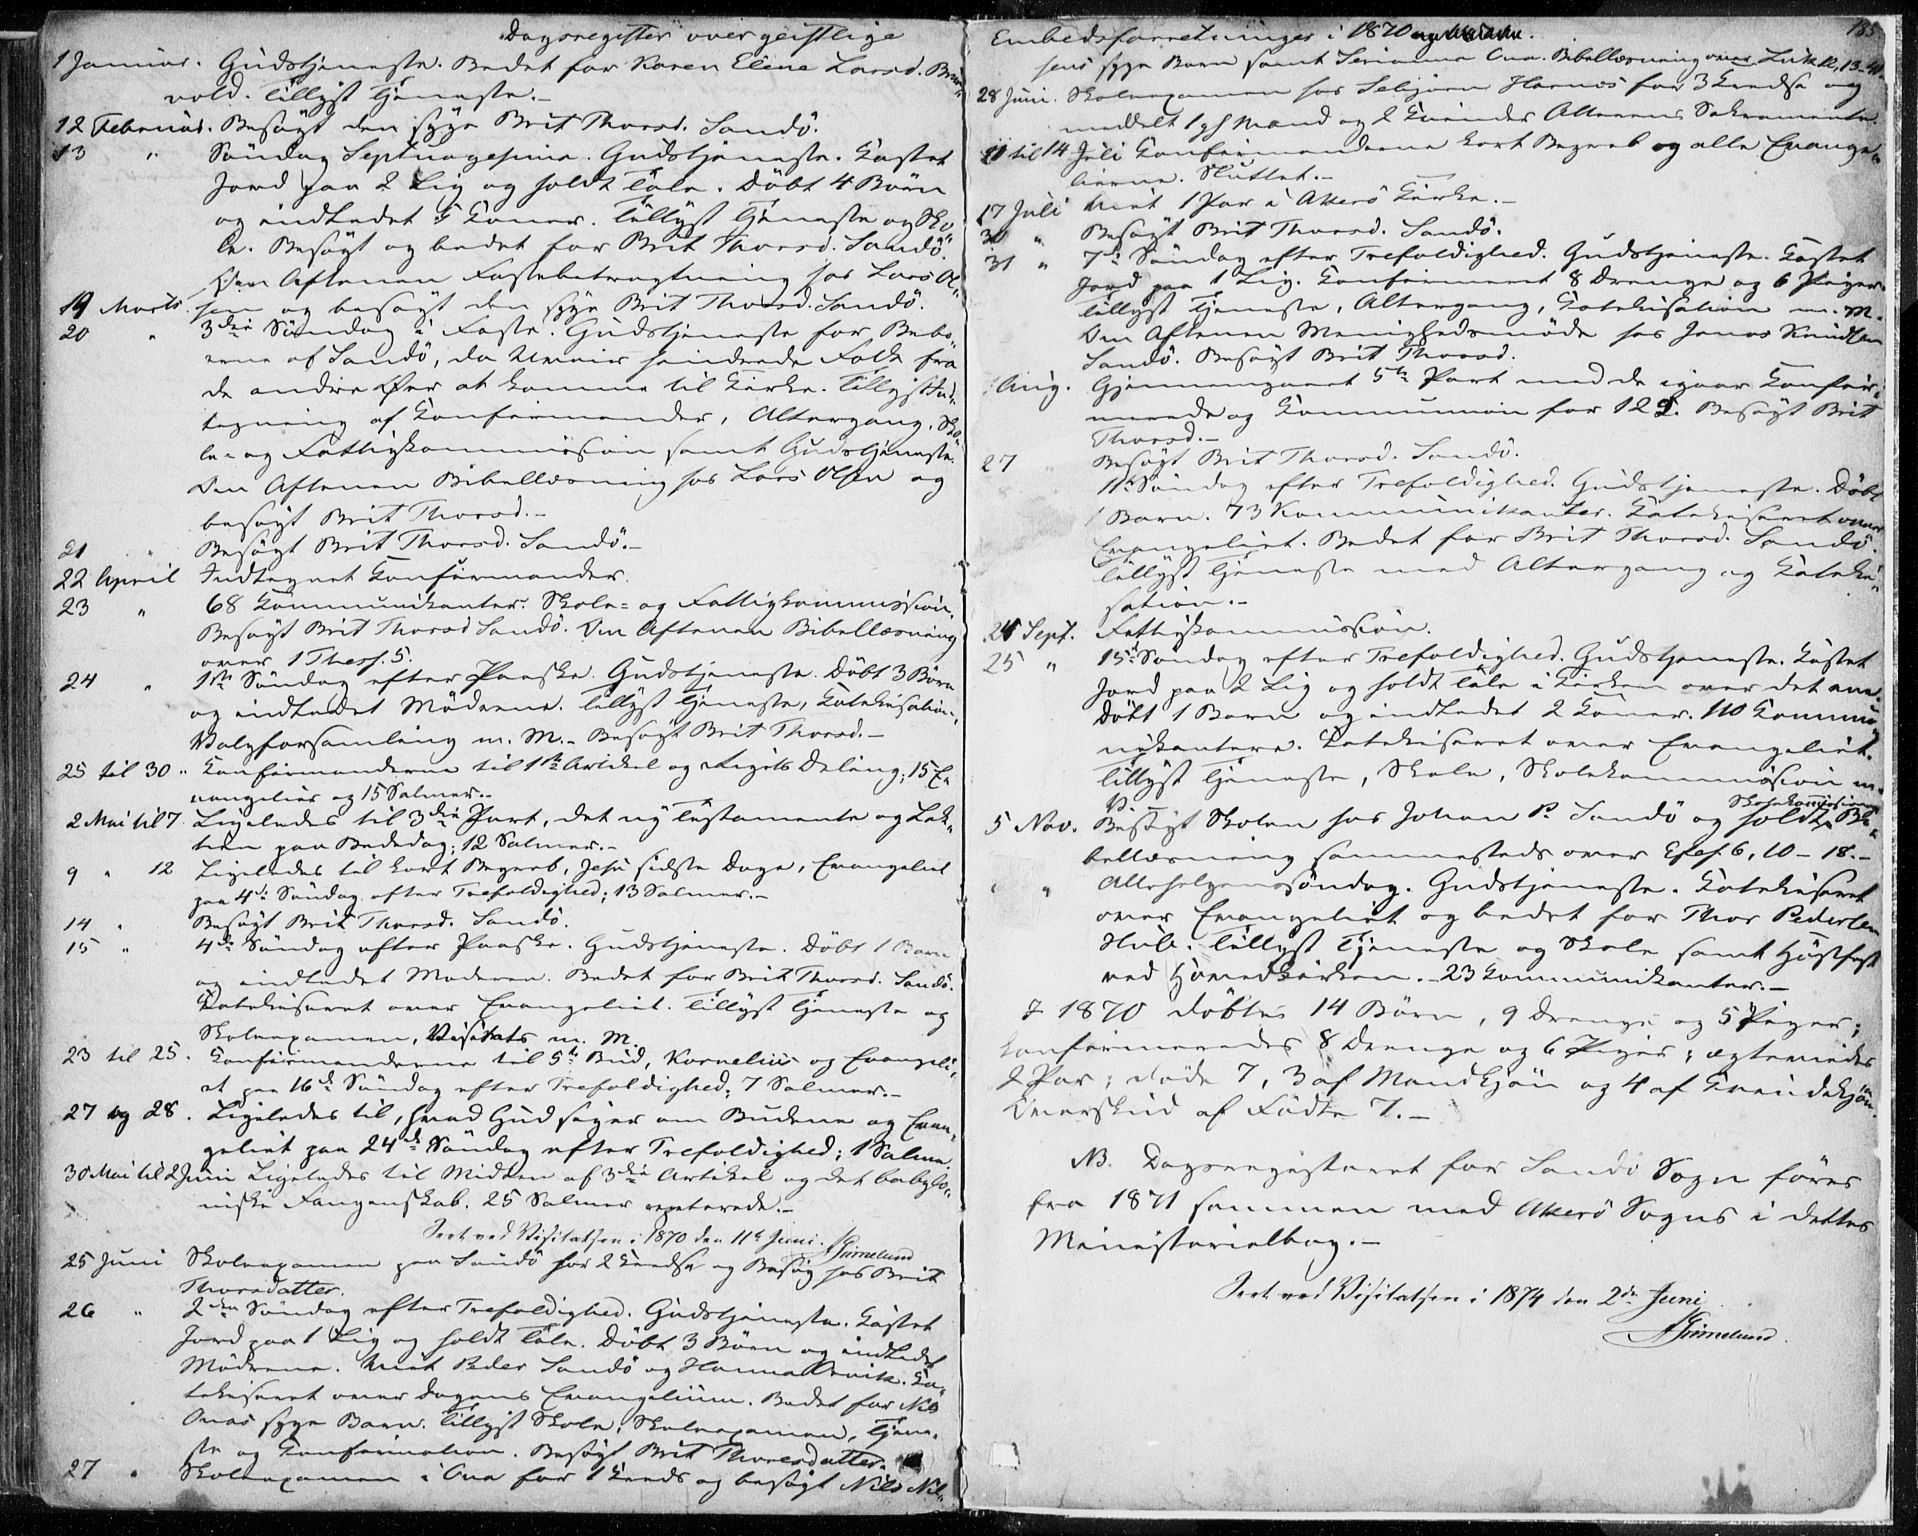 Dagsregister over geistlige
1 Januar. Gudstjeneste. Bedet for Karen Elene Larsd. Brein-
vold. Tillyst Tjeneste.-
12 Februar. Besøgt den syge Brit Thorsd. Sandö.
13 " Söndag Septuagesima. Gudstjeneste. Kastet
Jord paa 2 Lig og holdt Tale. Döbt 4 Börn
og indledet 5 Koner. Tillyst Tjeneste og Sko-
le. Besøgt og bedet for Brit Thorsd. Sandö.
Om Aftenen Fastebetragtning hos Lars Ol-
19 Marts. sen og besøgt den syge Brit Thorsd. Sandö.
20 " 3die Söndag i Faste. Gudstjeneste for Bebo-
erne af Sandö, da Uveir hindrede Folk fra
de andre Øer at komme til Kirke. Tillyst Ind-
tegning af Konfirmander, Altergang, Sko-
le- og Fattigkommission samt Gudstjeneste.
Om Aftenen Bibellæsning hos Lars Olsen og
besøgt Brit Thorsd.-
21 " Besøgt Brit Thorsd. Sandö.-
22 April Indtegnet Konfirmander.
23 " 68 Kommunikanter. Skole- og Fattigkommission.
Besøgt Brit Thorsd Sandö. Om Aftenen Bibellæsning
over 1 Thess. 5.
24 " 1ste Söndag efter Paaske. Gudstjeneste. Döbt 3 Börn
og indledet Mödrene. Tillyst Tjeneste, Katekisation,
Valgforsamling m. M.- Besøgt Brit Thorsd.-
25 til 30 " Konfirmanderne til 1ste Artikel og Rigets Deling; 15 E-
vangelier og 15 Salmer.-
2 Mai til 7. Ligeledes til 3die Part, det ny Testamente og Lek-
tien paa Bededag; 12 Salmer.-
9 " 12 Ligeledes til kort Begreb, Jesu sidste Dage, Evangeliet
paa 4de Söndag efter Trefoldighed; 13 Salmer.-
14 " Besøgt Brit Thorsd. Sandö.
15 " 4de Söndag efter Paaske. Gudstjeneste. Döbt 1 Barn
og indledet Moderen. Bedet for Brit Thorsd. Sandö.
Katekiseret over Evangeliet. Tillyst Tjeneste og
Skoleexamen, Visitats m. M.
23 til 25. Konfirmanderne til 5te Bud, Kornelius og Evangeli-
et paa 16de Söndag efter Trefoldighed; 7 Salmer.-
27 og 28. Ligeledes til, hvad Gud siger om Budene og Evan-
geliet paa 24de Söndag efter Trefoldighed; 1 Salme.
30 Mai til 2 Juni Ligeledes til Midten af 3die Artikel og det babylo-
niske Fangenskab. 25 Salmer repeterede.-
Seet ved Visitatsen i 1870 den 11te Juni. Grimelund
25 Juni Skoleexamen paa Sandö for 2 Kredse og Besøg hos Brit
Thorsdatter.
26 " 2den Söndag efter Trefoldighed. Gudstjeneste. Kastet
Jord paa 1 Lig og holdt Tale. Döbt 3 Börn og indledet
Mödrene. Viet Peder Sandö og Hanna Orvik. Ka-
tekiseret over Dagens Evangelium. Bedet for Nils
Onas syge Barn. Tillyst Skole, Skoleexamen, Tjene-
ste og Konfirmation. Besøgt Brit Thorsdatter.
27 " Skoleexamen i Ona for 1 Kreds og besøgt Nils Nil-
Embedsforretninger i 1870
185
sens syge Barn samt Bibellæsning over Luk. 12, 13-
28 Juni. Skoleexamen hos Sebjörn Harnös for 3 Kredse og
meddelt 1 gl Mand og 2 Kvinder Alterens Sakramente.
11 til 14 Juli Konfirmanderne kort Begreb og alle Evange-
lierne. Sluttet.-
17 Juli Viet 1 Par i Akerö Kirke.-
30 " Besøgt Brit Thorsd. Sandö.
31 " 7de Söndag efter Trefoldighed. Gudstjeneste. Kastet
Jord paa 1 Lig. Konfirmeret 8 Drenge og 6 Piger.
Tillyst Tjeneste, Altergang, Katekisation m. M.
Om Aftenen Menighedsmøde hos Jonas Knudsen
Sandö. Besøgt Brit Thorsd.
1 Aug. Gjennemgaaet 5te Part med de igaar Konfir-
merede og Kommunion for 12. Besøgt Brit
Thorsd.-
27 " Besøgt Brit Thorsd. Sandö.
11te Söndag efter Trefoldighed. Gudstjeneste. Döbt
1 Barn. 73 Kommunikanter. Katekiseret over
Evangeliet. Bedet for Brit Thorsd. Sandö.
Tillyst Tjeneste med Altergang og Kateki-
sation.-
24 Sept. Fattigkommission.
25 " 15de Söndag efter Trefoldighed. Gudstjeneste. Kastet
Jord paa 2 Lig og holdt Tale i Kirken over det ene.
Döbt 1 Barn og indledet 2 Koner. 110 Kommu-
nikantere. Katekiseret over Evangeliet.
Tillyst Tjeneste, Skole, Skolekommission m.
V.
5 Nov. Besøgt Skolen hos Johan P. Sandö og holdt Skolekommission Bi-
bellæsning sammesteds over Efes. 6, 10-18.-
" " Allehelgenssöndag. Gudstjeneste. Katekiseret
over Evangeliet og bedet for Thor Pedersen
Tillyst Tjeneste og Skole samt Høstfest
ved Hovedkirken. 23 Kommunikanter.-
I 1870 döbtes 14 Börn, 9 Drenge og 5 Piger;
konfirmeredes 8 Drenge og 6 Piger; ægteviedes
2 Par; døde 7, 3 af Mandkjön og 4 af Kvindekjön.
Overskud af Födte 7.-
NB. Dagsregisteret for Sandö Sogn föres
fra 1871 sammen med Akerö Sogns i dettes
Ministerialbog.-
Seet ved Visitatsen i 1874 den 2den Juni
Grimelund.